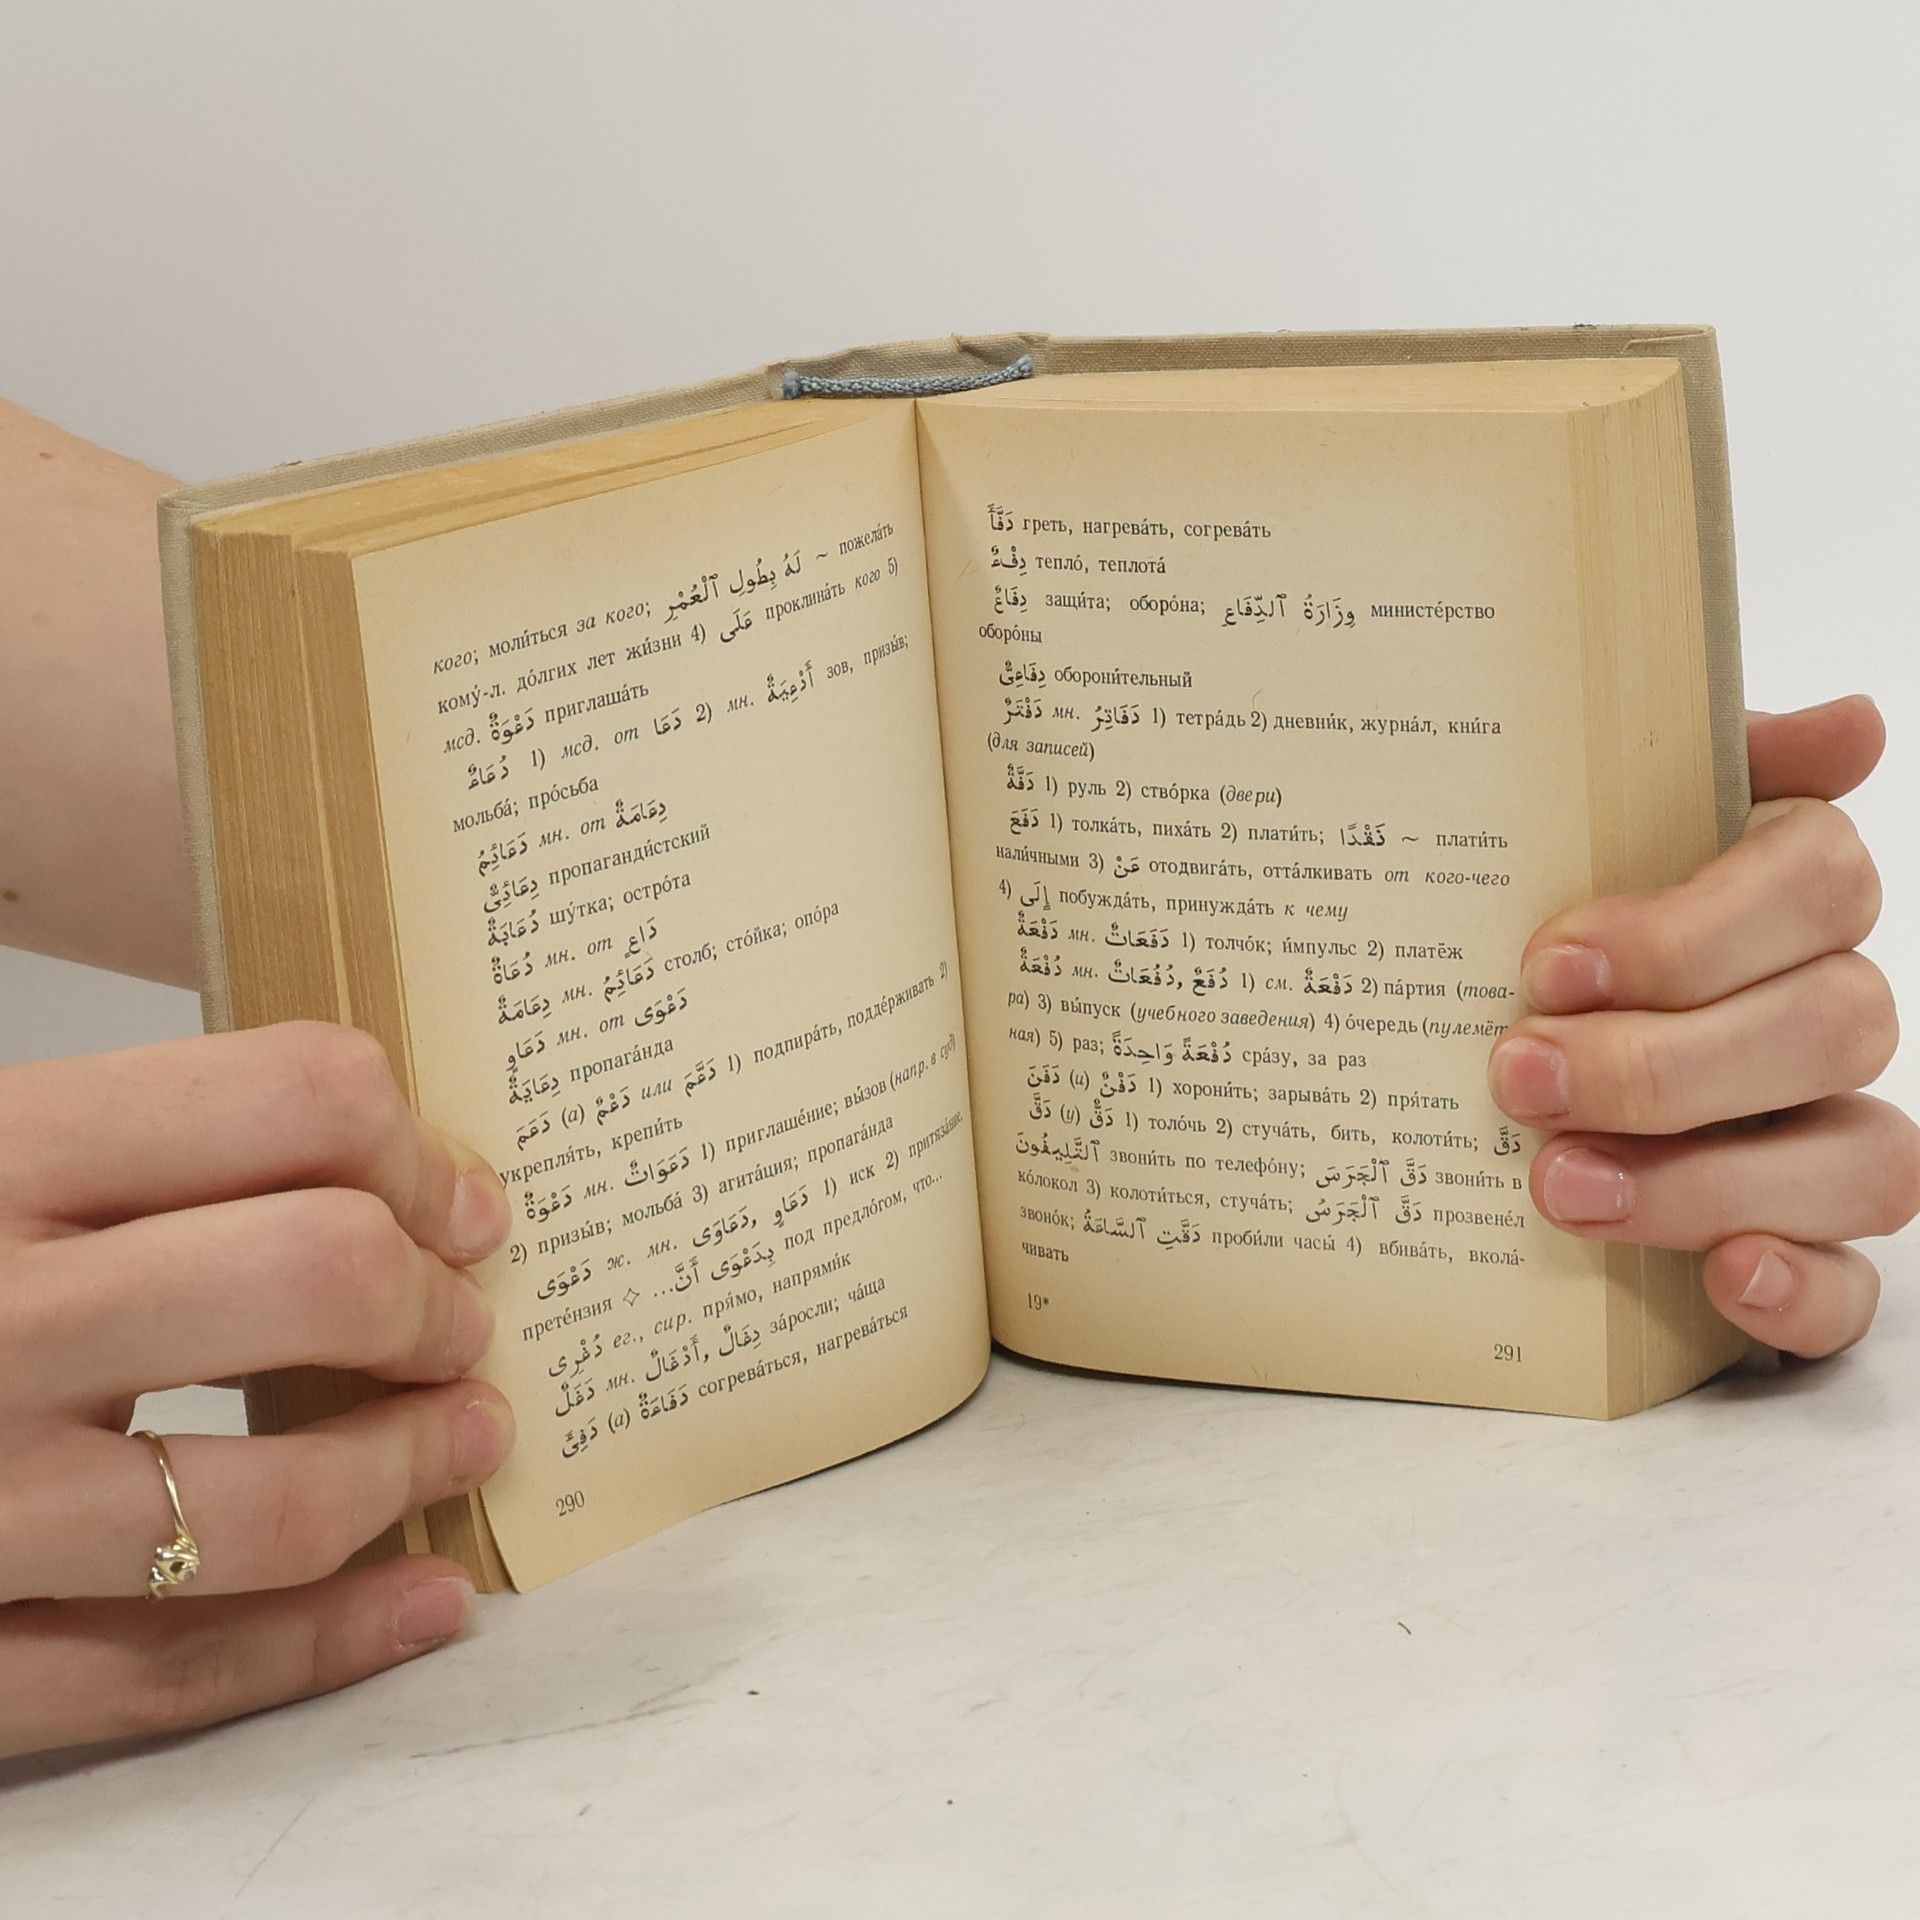 кого; моли́ться за кого; لَهُ بِطُولِ ٱلْعُمْرِ ~ пожела́ть
кому́-л. до́лгих лет жи́зни 4) عَلَى проклина́ть кого 5)
приглаша́ть мсд. دَعْوَةٌ
دُعَاءٌ 1) мсд. от دَعَا 2) мн. أَدْعِيَةٌ зов, призы́в;
мольба́; про́сьба
دَعَائِمُ мн. от دِعَامَةٌ
دِعَائِىٌّ пропаганди́стский
دُعَابَةٌ шу́тка; остро́та
دُعَاةٌ мн. от دَاعٍ
دِعَامَةٌ мн. دَعَائِمُ столб; сто́йка; опо́ра
دَعَاوٍ мн. от دَعْوَى
دِعَايَةٌ пропага́нда
دَعَمَ (a) دَعْمٌ или دَعَّمَ 1) подпира́ть, подде́рживать 2)
укрепля́ть, крепи́ть
دَعْوَةٌ мн. دَعَوَاتٌ 1) приглаше́ние; вы́зов (напр. в суд)
2) призы́в; мольба́ 3) агита́ция; пропага́нда
دَعْوَى ж. мн. دَعَاوَى, دَعَاوٍ 1) иск 2) притяза́ние,
прете́нзия ✧ بِدَعْوَى أَنَّ... под предло́гом, что...
دُغْرِى ег., сир. пря́мо, напрями́к
دَغَلٌ мн. أَدْغَالٌ, دِغَالٌ за́росли; ча́ща
دَفِئَ (a) دَفَاءَةٌ согрева́ться, нагрева́ться
290
دَفَّأَ греть, нагрева́ть, согрева́ть
دِفْءٌ тепло́, теплота́
دِفَاعٌ защи́та; оборо́на; وِزَارَةُ ٱلدِّفَاعِ министе́рство
оборо́ны
دِفَاعِىٌّ оборони́тельный
دَفْتَرٌ мн. دَفَاتِرُ 1) тетра́дь 2) дневни́к, журна́л, кни́га
(для записей)
دَفَّةٌ 1) руль 2) ство́рка (двери)
دَفَعَ 1) толка́ть, пиха́ть 2) плати́ть; نَقْدًا ~ плати́ть
нали́чными 3) عَنْ отодвига́ть, отта́лкивать от кого-чего
4) إِلَى побужда́ть, принужда́ть к чему
دَفْعَةٌ мн. دَفَعَاتٌ 1) толчо́к; и́мпульс 2) платёж
دُفْعَةٌ мн. دُفَعٌ, دُفُعَاتٌ 1) см. دَفْعَةٌ 2) па́ртия (това-
ра) 3) вы́пуск (учебного заведения) 4) о́чередь (пулемёт
ная) 5) раз; دُفْعَةً وَاحِدَةً сра́зу, за раз
دَفَنَ (и) دَفْنٌ 1) хорони́ть; зарыва́ть 2) пря́тать
دَقَّ (у) دَقٌّ 1) толо́чь 2) стуча́ть, бить, колоти́ть; دَقَّ
ٱلتَّلِيفُونَ звони́ть по телефо́ну; دَقَّ ٱلْجَرَسَ звони́ть в
ко́локол 3) колоти́ться, стуча́ть; دَقَّ ٱلْجَرَسُ прозвене́л
звоно́к; دَقَّتِ ٱلسَّاعَةُ проби́ли часы́ 4) вбива́ть, вкола́-
чивать
19*
291